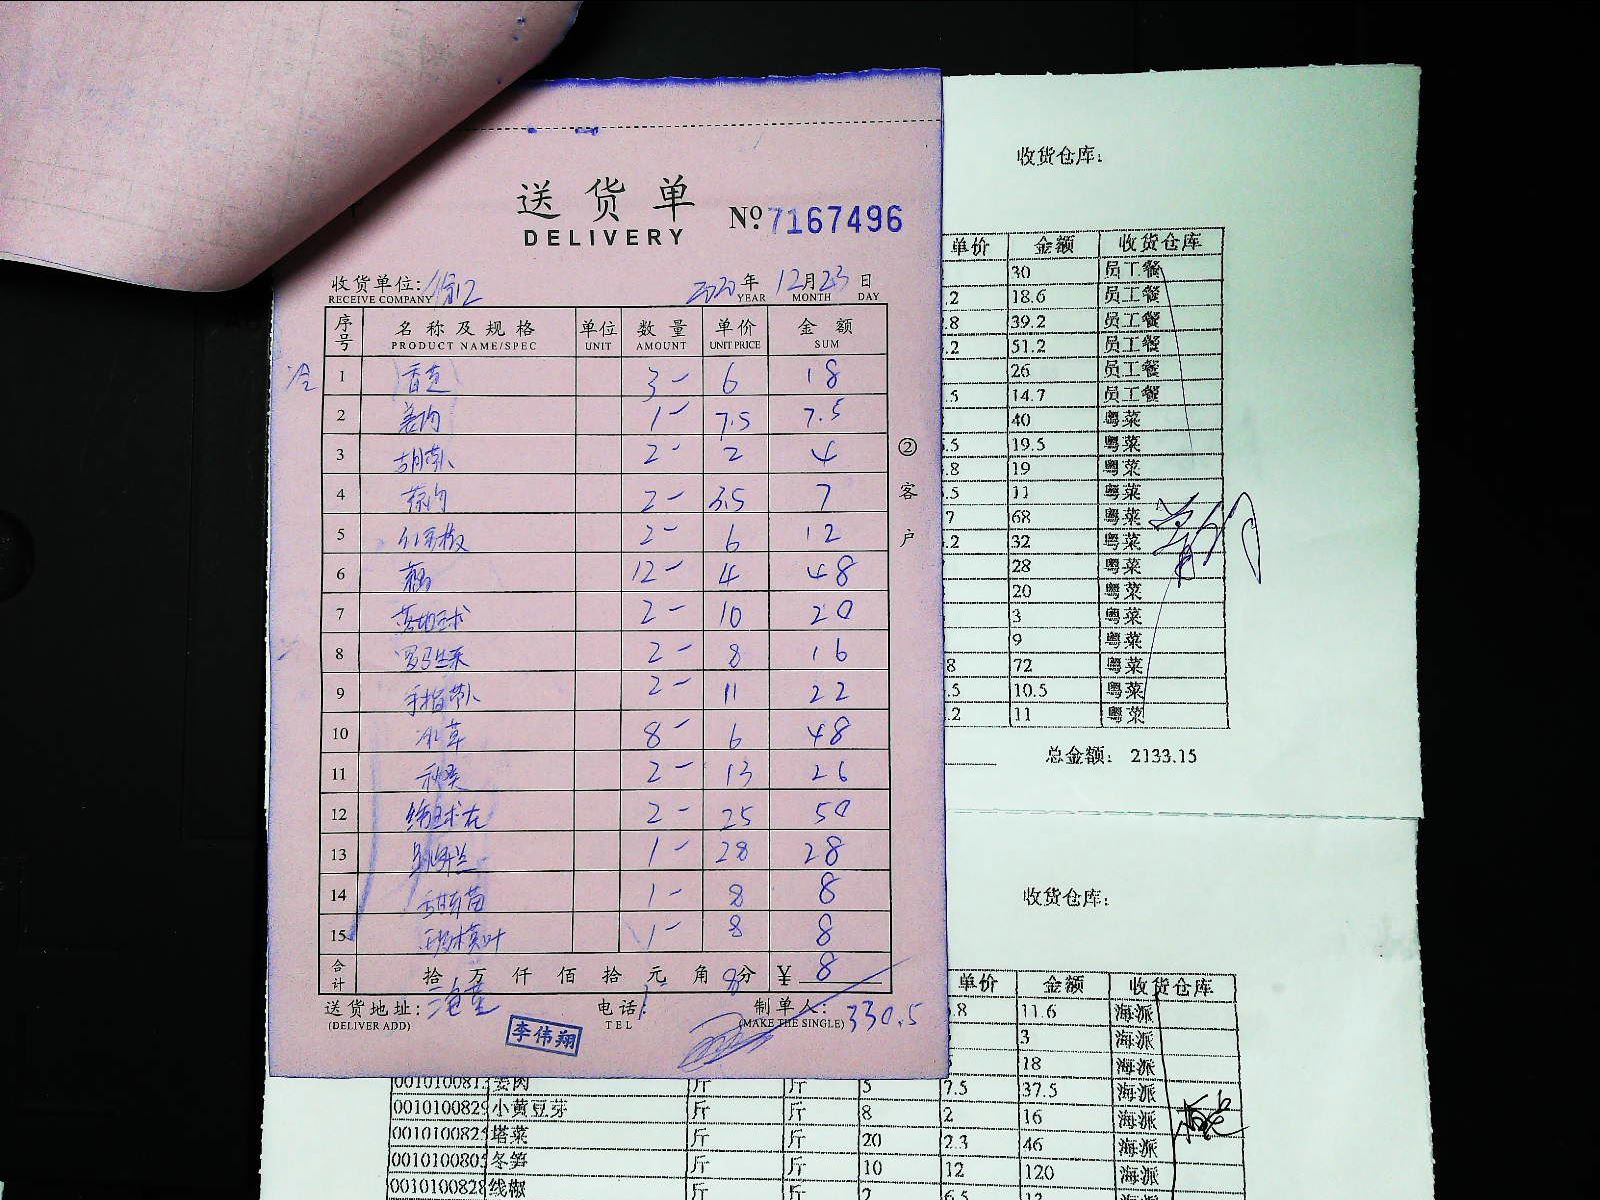 送货单
DELIVERY
No. 7167496
收货单位:
RECEIVE COMPANY
2020年 12月 23日
YEAR MONTH DAY
序号 名称及规格 单位 数量 单价 金额
PRODUCT NAME/SPEC UNIT AMOUNT UNIT PRICE SUM
冷
1 香芒 3- 6 18
2 姜肉 1- 7.5 7.5
3 胡萝卜 2- 2 4
4 蒜肉 2- 3.5 7
5 2- 6 12
6 藕 12- 4 48
7 2- 10 20
8 罗马生菜 2- 8 16
9 手指萝卜 2- 11 22
10 冰草 8- 6 48
11 秋葵 2- 13 26
12 2- 25 50
13 1- 28 28
14 1- 8 8
15 1- 8 8
合计 拾 万 仟 佰 拾 元 角 8 分 ¥ 8
送货地址:
(DELIVER ADD)
电话:
TEL
制单人:
(MAKE THE SINGLE)
330.5
李伟翔
② 客户
收货仓库:
单价 金额 收货仓库
30 员工餐
.2 18.6 员工餐
.8 39.2 员工餐
.2 51.2 员工餐
26 员工餐
.5 14.7 员工餐
40 粤菜
.5 19.5 粤菜
.8 19 粤菜
.5 11 粤菜
7 68 粤菜
.2 32 粤菜
28 粤菜
20 粤菜
3 粤菜
9 粤菜
8 72 粤菜
.5 10.5 粤菜
.2 11 粤菜
总金额: 2133.15
收货仓库:
单价 金额 收货仓库
.8 11.6 海派
3 海派
18 海派
001010081 姜肉 斤 斤 5 7.5 37.5 海派
001010082 小黄豆芽 斤 斤 8 2 16 海派
001010082 塔菜 斤 斤 20 2.3 46 海派
001010080 冬笋 斤 斤 10 12 120 海派
001010082 线椒 斤 斤 2 6.5 13 海派